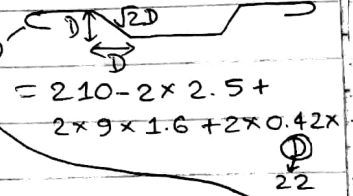 D √2D
D
= 210-2×2.5+
2×9×1.6+2×0.42×
D
22